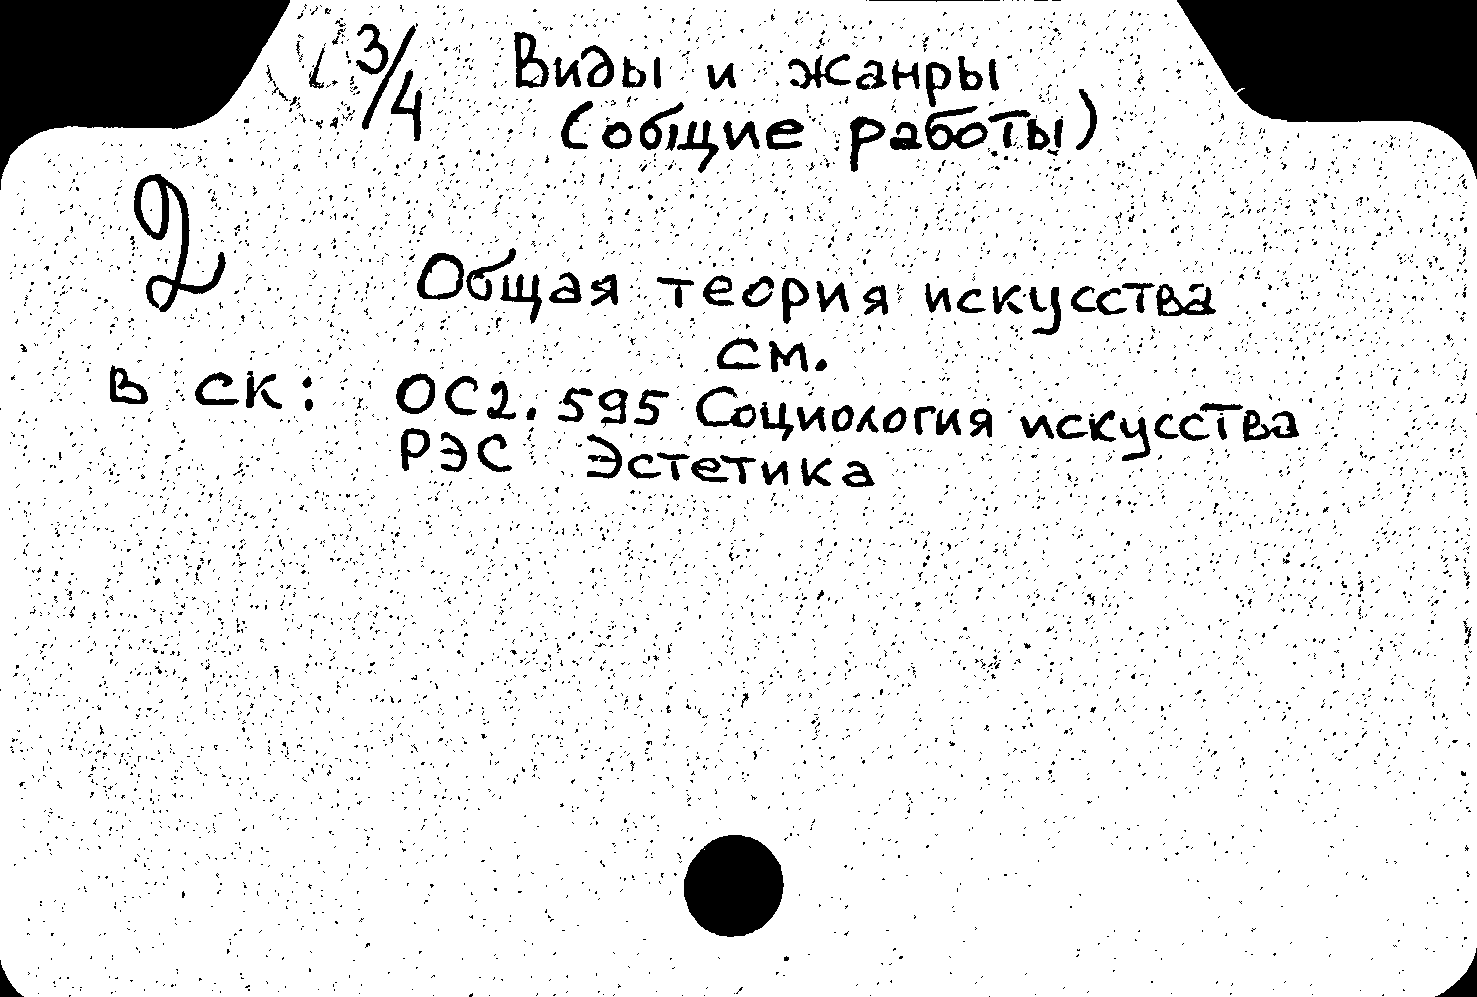 3/4 Виды и жанры
(общие работы)
2
Общая теория искусства
см.
в ск: ОС2.595 Социология искусства
РЭС Эстетика